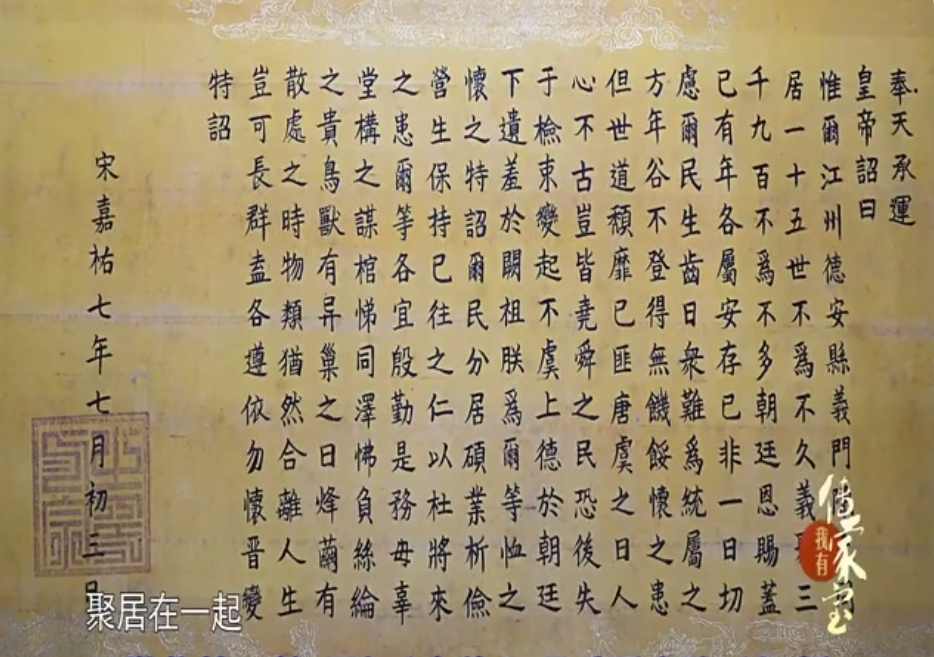 奉天承運
皇帝詔曰
惟爾江州德安縣義門
居一十五世不爲不久義三
千九百不爲不多朝廷恩賜蓋
已有年各屬安存已非一日切
慮爾民生齒日衆難爲統屬之
方年谷不登得無饑餒懷之患
但世道頹靡已匪唐虞之日人
心不古豈皆堯舜之民恐後失
于檢束變起不虞上德於朝廷
下遺羞於闕祖朕爲爾等恤之
懷之特詔爾民分居碩業析儉
營生保持已往之仁以杜將來
之患爾等各宜殷勤是務毋辜
堂構之謀棺悌同澤怫負絲綸
之貴鳥獸有异巢之日烽繭有
散處之時物類猶然合離人生
豈可長群盍各遵依勿懷晋變
特詔
宋嘉祐七年七月初三
我有傳家寶
聚居在一起